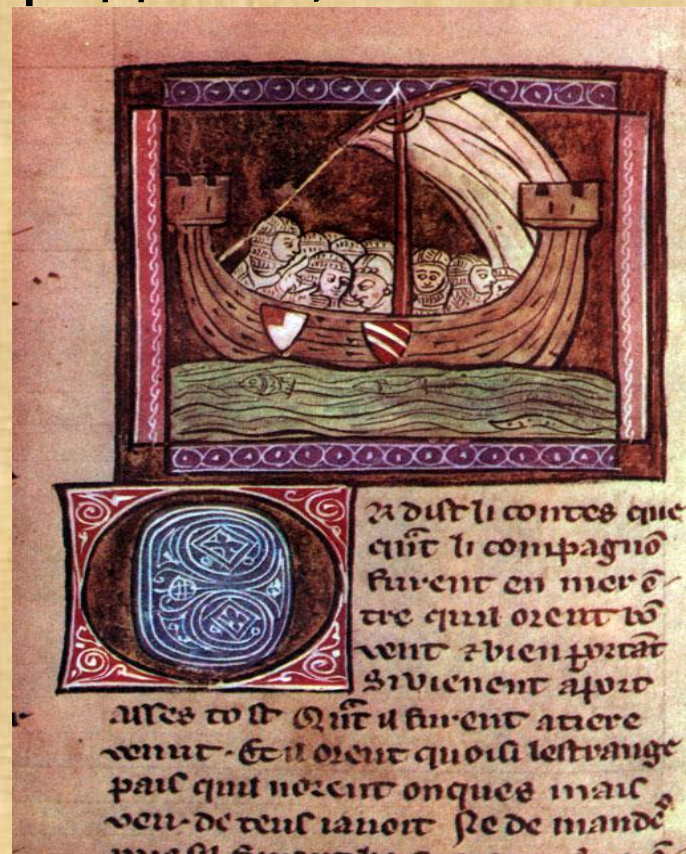 O
r dist li contes que
qu̅t li compagno̅
furent en mer e̅-
tre quil orent bo̅
vent ⁊ bien portãt
Si vienent a port
asses tost Qu̅t il furent a tiere
venut. Et il orent quoisi lestrange
pais quil norent onques mais
veu. de teus i avoit